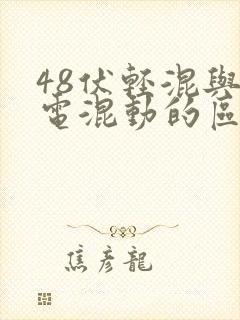 48伏輕混與
電混動的區
焦彦龍